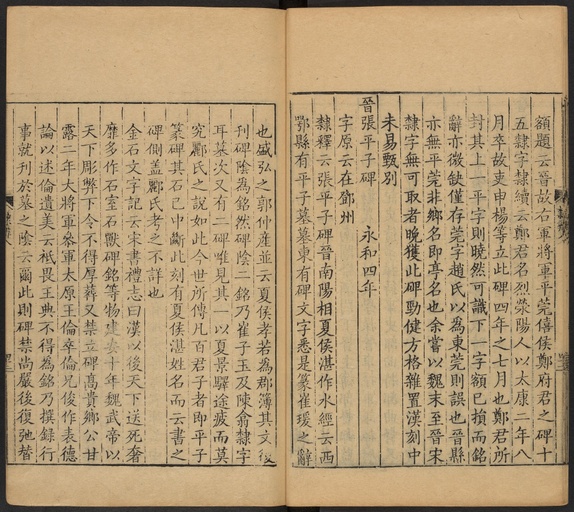 額題云晉故右軍將軍平莞僖侯鄭府君之碑十
五隸字隸續云鄭君名烈滎陽人以太康二年八
月卒故吏申楊等立此碑四年之七月也鄭君所
封其上一平字則曉然可識下一字額已損而銘
辭亦微缺僅存莞字趙氏以為東莞則誤也晉縣
亦無平莞非鄉名即亭名也余嘗以魏末至晉宋
隸字無可取者晚獲此碑勁健方格雜置漢刻中
未易甄別
晉張平子碑 永和四年
字原云在鄧州
隸釋云張平子碑晉南陽相夏侯湛作水經云西
鄂縣有平子墓墓東有碑文字悉是篆崔瑗之辭
也盛弘之郭仲產並云夏侯孝若為郡簿其文復
刊碑陰為銘然碑陰二銘乃崔子玉及陳翕隸字
耳墓次又有二碑唯見其一以夏景驛途疲而莫
究酈氏之說如此今世所傳凡百君子者即平子
篆碑其石已中斷此刻有夏侯湛姓名而云書之
碑側蓋酈氏考之不詳也
金石文字記云宋書禮志曰漢以後天下送死奢
靡多作石室石獸碑銘等物建安十年魏武帝以
天下彫弊下令不得厚葬又禁立碑高貴鄉公甘
露二年大將軍參軍太原王倫卒倫兄俊作表德
論以述倫遺美云祗畏王典不得為銘乃撰錄行
事就刊於墓之陰云爾此則碑禁尚嚴後復弛替